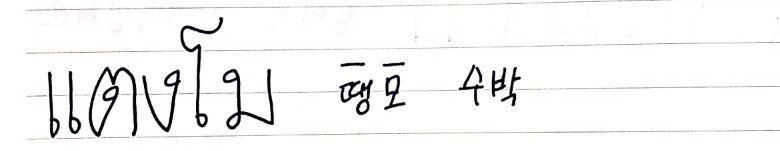 แตงโม 땡모 수박